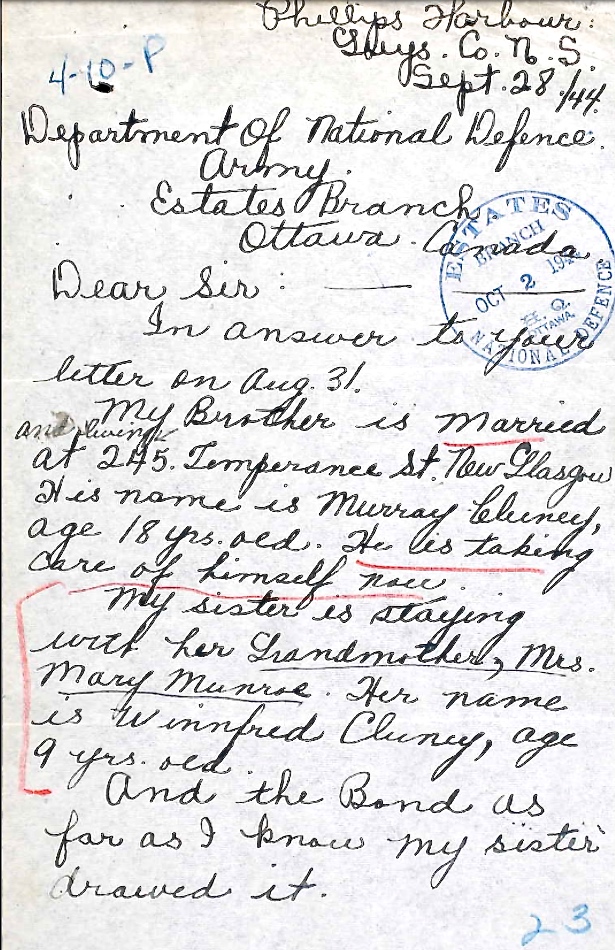 Phillips Harbour.
Guys. Co. N. S.
4-10-P
Sept. 28/44.
Department Of National Defence.
Army.
Estates Branch
Ottawa. Canada.
ESTATES
BRANCH
OCT 2 194
H. Q.
OTTAWA
NATIONAL DEFENCE
Dear Sir:
In answer to your
letter on Aug. 31.
My Brother is Married
and living
at 245. Temperance St. New Glasgow
His name is Murray Cluney,
age 18 yrs. old. He is taking
care of himself now
My sister is staying
with her Grandmother, Mrs.
Mary Munroe. Her name
is Winnfred Cluney, age
9 yrs. old.
And the Bond as
far as I know my sister
drawed it.
23